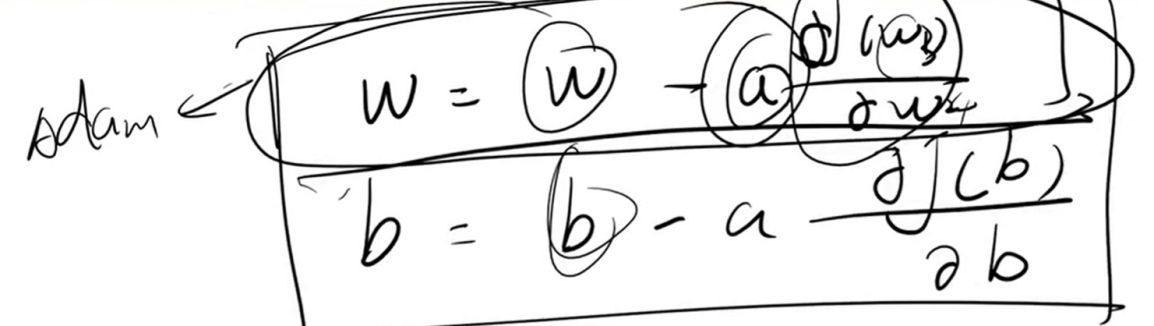 Adam
w = w - a ∂ (w) / ∂w
b = b - a ∂J(b) / ∂b